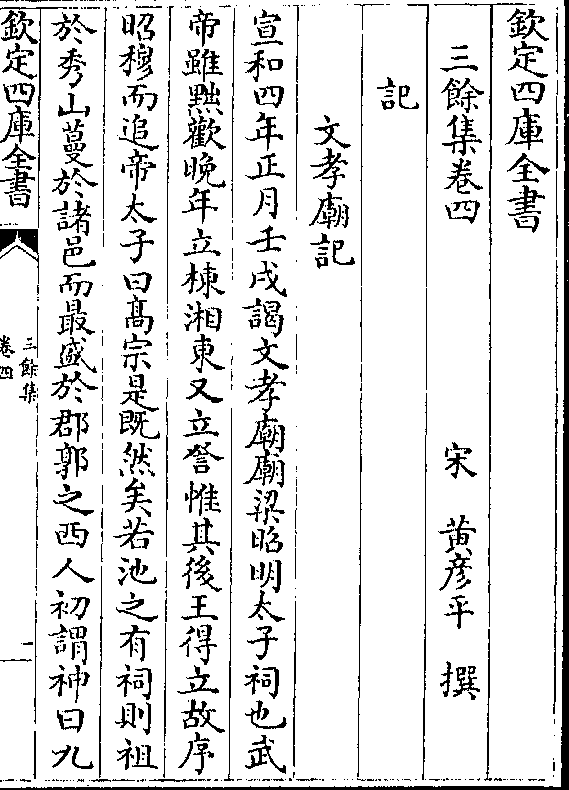 欽定四庫全書
三餘集卷四
宋 黃彥平 撰
記
文孝廟記
宣和四年正月壬戌謁文孝廟廟梁昭明太子祠也武
帝雖黜歡晚年立棟湘東又立詧惟其後王得立故序
昭穆而追帝太子曰髙宗是既然矣若池之有祠則祖
於秀山蔓於諸邑而最盛於郡郭之西人初謂神曰九
欽定四庫全書
三餘集
卷四
一